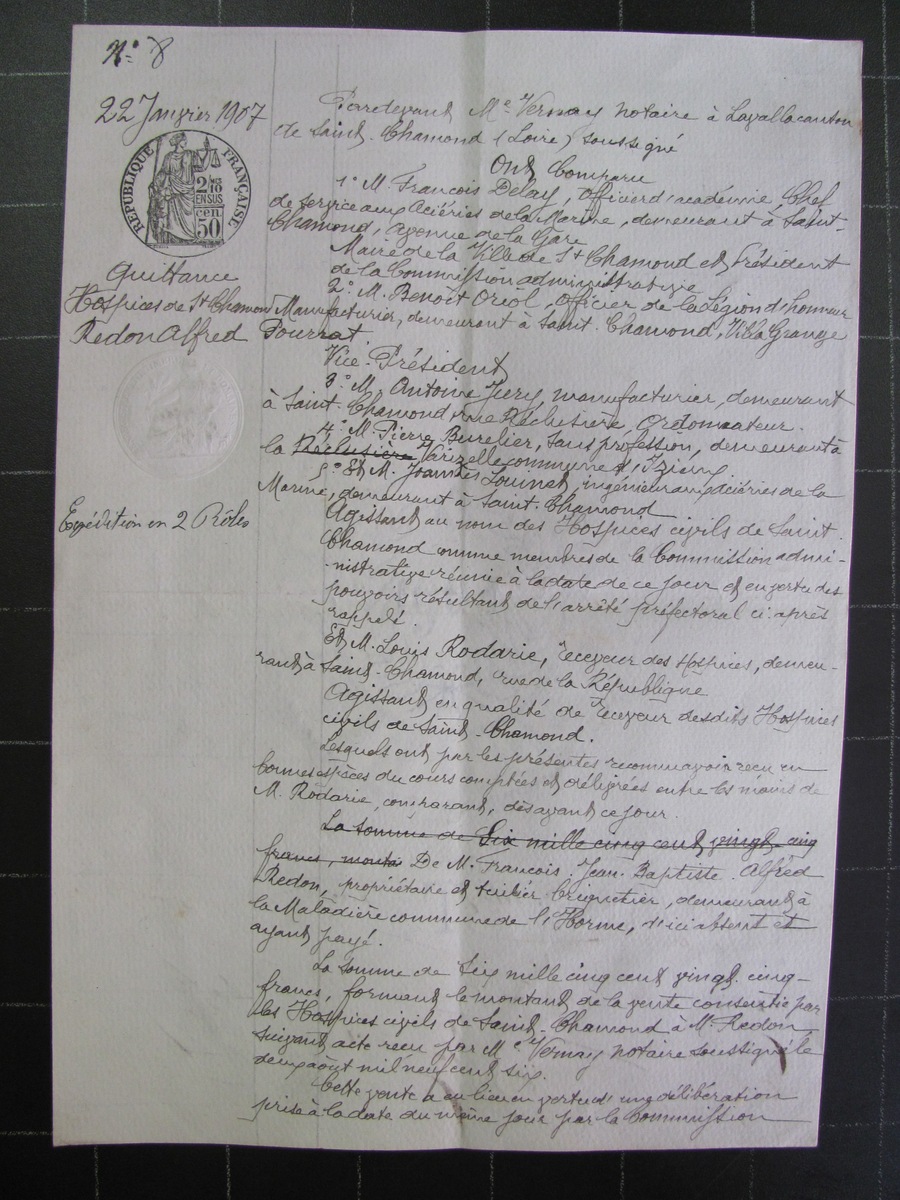 N° 8
22 Janvier 1907
RÉPUBLIQUE FRANÇAISE
2/10
EN SUS
50 cen
Quittance
Hospices de St Chamond
Redon Alfred
Expédition en 2 Rôles
Pardevant Me Vernay notaire à Lavalla canton
de Saint-Chamond (Loire) soussigné
Ont Comparu
1° M. François Delay, Officier d'académie, Chef
de service aux Aciéries de la Marine, demeurant à Saint-
Chamond, Avenue de la Gare
Maire de la Ville de St Chamond et Président
de la Commission administrative
2° M. Benoît Oriol, Officier de la Légion d'honneur
Manufacturier, demeurant à Saint-Chamond, Villa Grange
Pourrat.
Vice-Président
3° M. Antoine Jury, manufacturier, demeurant
à Saint-Chamond, rue Réclusière, Ordonnateur.
4° M. Pierre Burelier, sans profession, demeurant à
la Réclusière Varizelle commune d'Izieux
5° Et M. Joannès , ingénieur aux Aciéries de la
Marine, demeurant à Saint-Chamond
Agissant au nom des Hospices civils de Saint-
Chamond comme membres de la Commission admi-
nistrative réunie à la date de ce jour et en vertu des
pouvoirs résultant de l'arrêté préfectoral ci-après
rappelé.
Et M. Louis Rodarie, receveur des Hospices, demeu-
rant à Saint-Chamond, rue de la République
Agissant en qualité de receveur desdits Hospices
civils de Saint-Chamond.
Lesquels ont par les présentes reconnu avoir reçu en
bonnes espèces du cours comptées et délivrées entre les mains de
M. Rodarie, comparant, dès avant ce jour.
La somme de Six mille cinq cent vingt-cinq
francs, monta De M. François-Jean-Baptiste-Alfred
Redon, propriétaire et tuilier briquetier, demeurant à
la Maladière commune de l'Horme, d'ici absent et
ayant payé.
La somme de Six mille cinq cent vingt-cinq-
francs, formant le montant de la vente consentie par
les Hospices civils de Saint-Chamond à M. Redon,
suivant acte reçu par Me Vernay notaire soussigné le
deux août mil neuf cent six.
Cette vente a eu lieu en vertu d'une délibération
prise à la date du même jour par la Commission